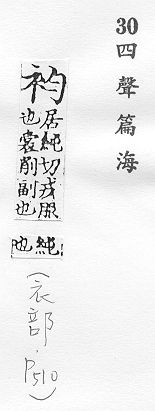 30四聲篇海
袀居純切戎服
也裳削副也
純也
(衣部.P510)